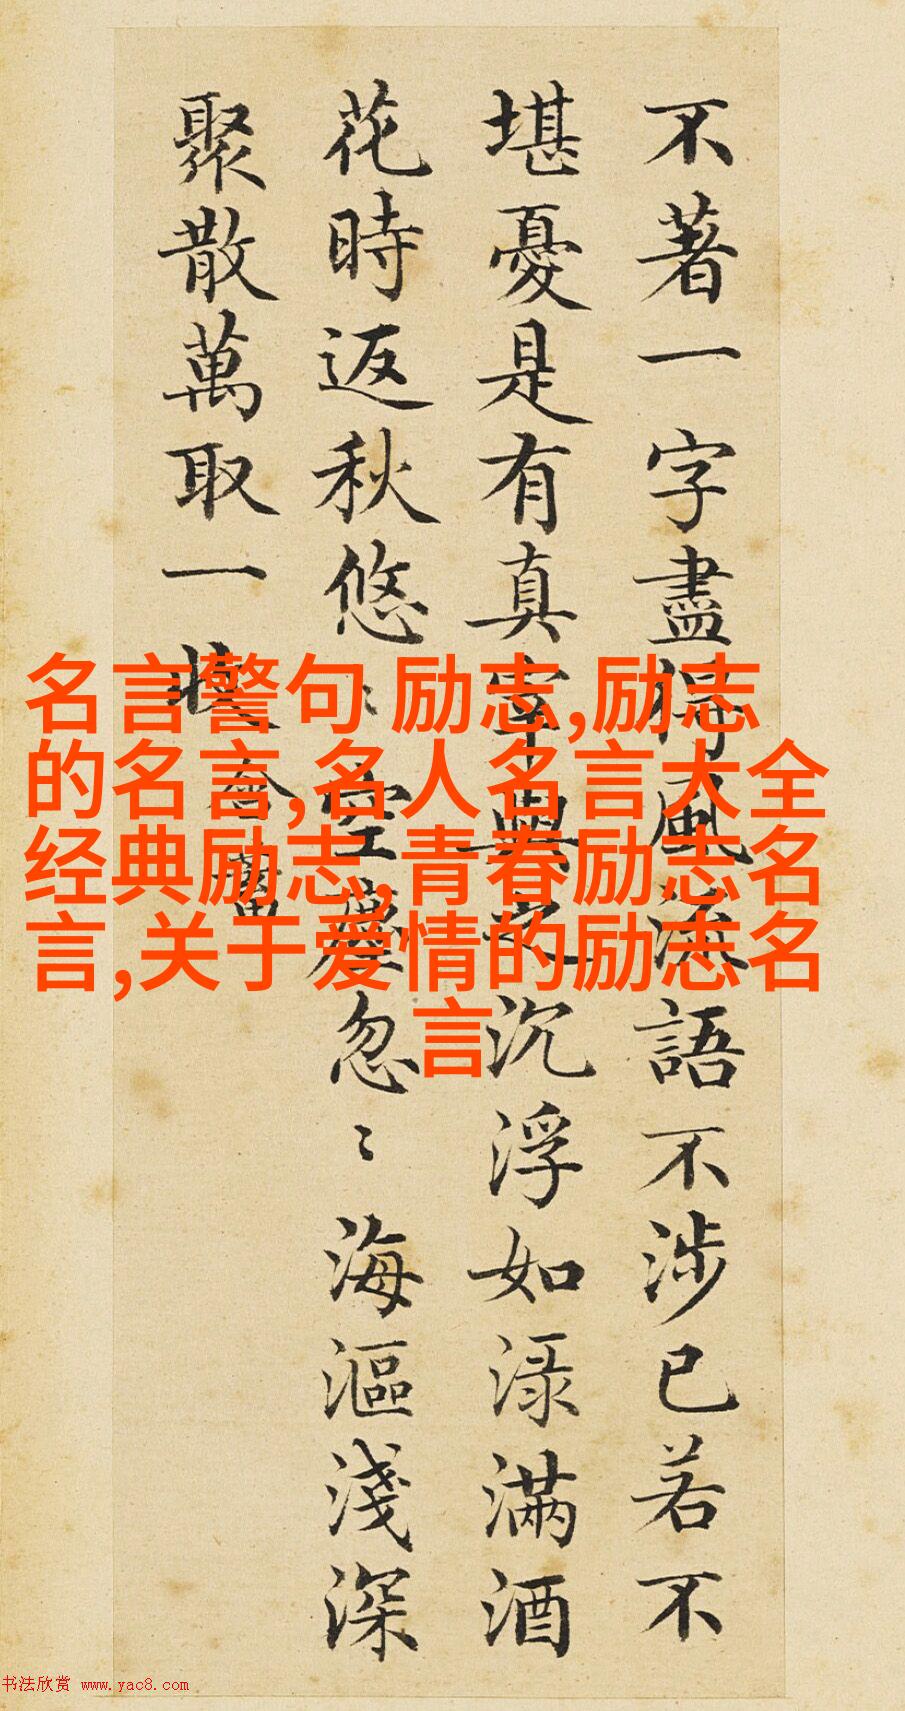 不著一字盡得風流語不涉已若不
堪憂是有真宰與之沉浮如渌滿酒
花時返秋悠〻空塵忽〻海漚淺深
聚散萬取一收
名言警句 励志,励志
的名言,名人名言大全
经典励志,青春励志名
言,关于爱情的励志名
言
书法欣赏 www.yac8.com